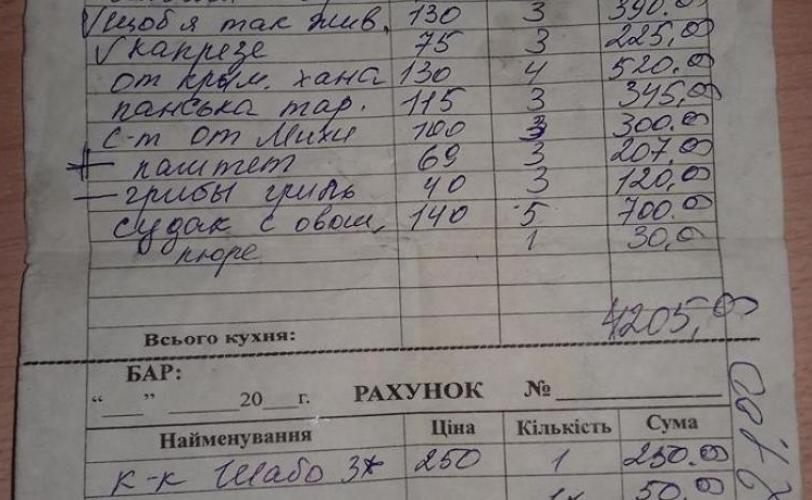 √щоб я так жив. 130 3 390.00
√капрезе 75 3 225,00
от крым. хана 130 4 520.00
панська тар. 115 3 345,00
с-т от Михи 100 3 300.00
+ паштет 69 3 207.00
— грибы гриль 40 3 120,00
судак с овощ, 140 5 700.00
пюре 1 30,00
Всього кухня: 4205,00
БАР:
“___” ______20___г. РАХУНОК №
Найменування Ціна Кількість Сума
к-к Шабо 3* 250 1 250.00
50.00